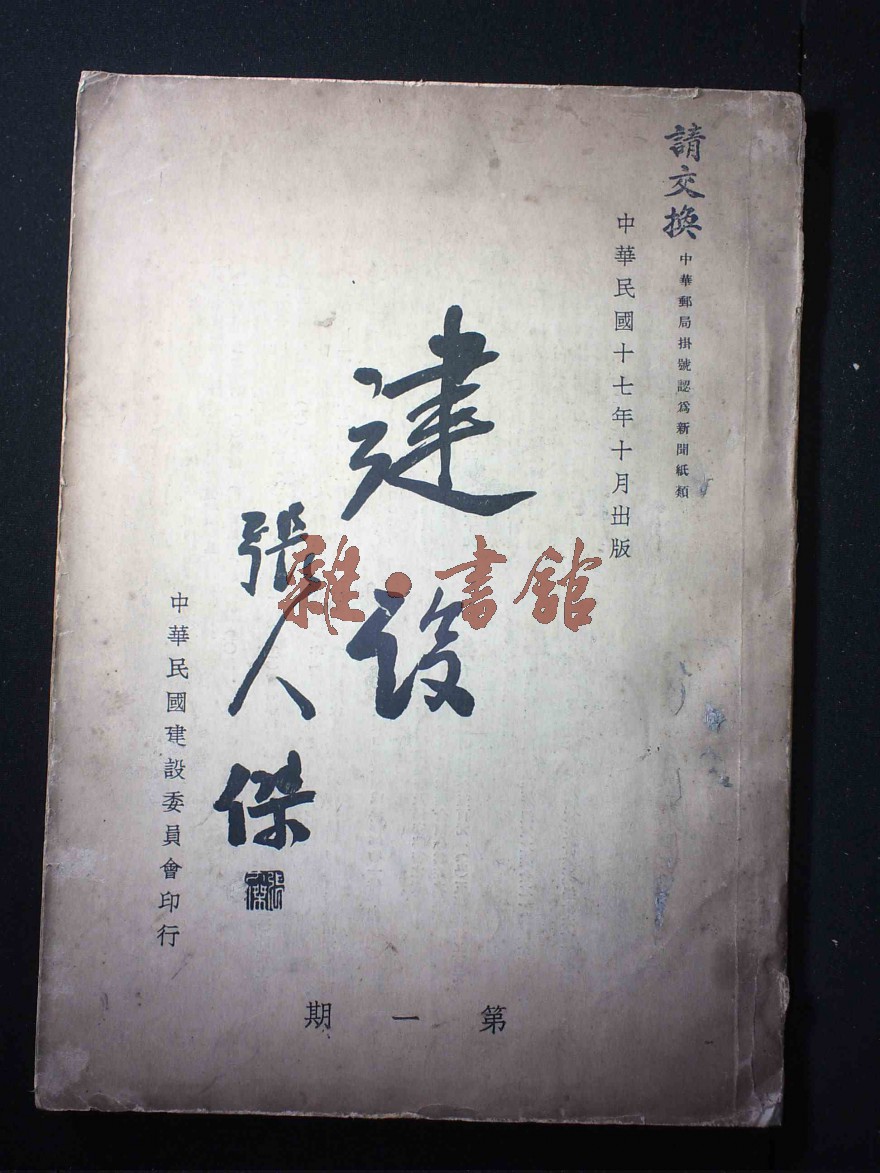 請交換
中華郵局掛號認爲新聞紙類
中華民國十七年十月出版
建設
張人傑
中華民國建設委員會印行
第一期
雜·書館